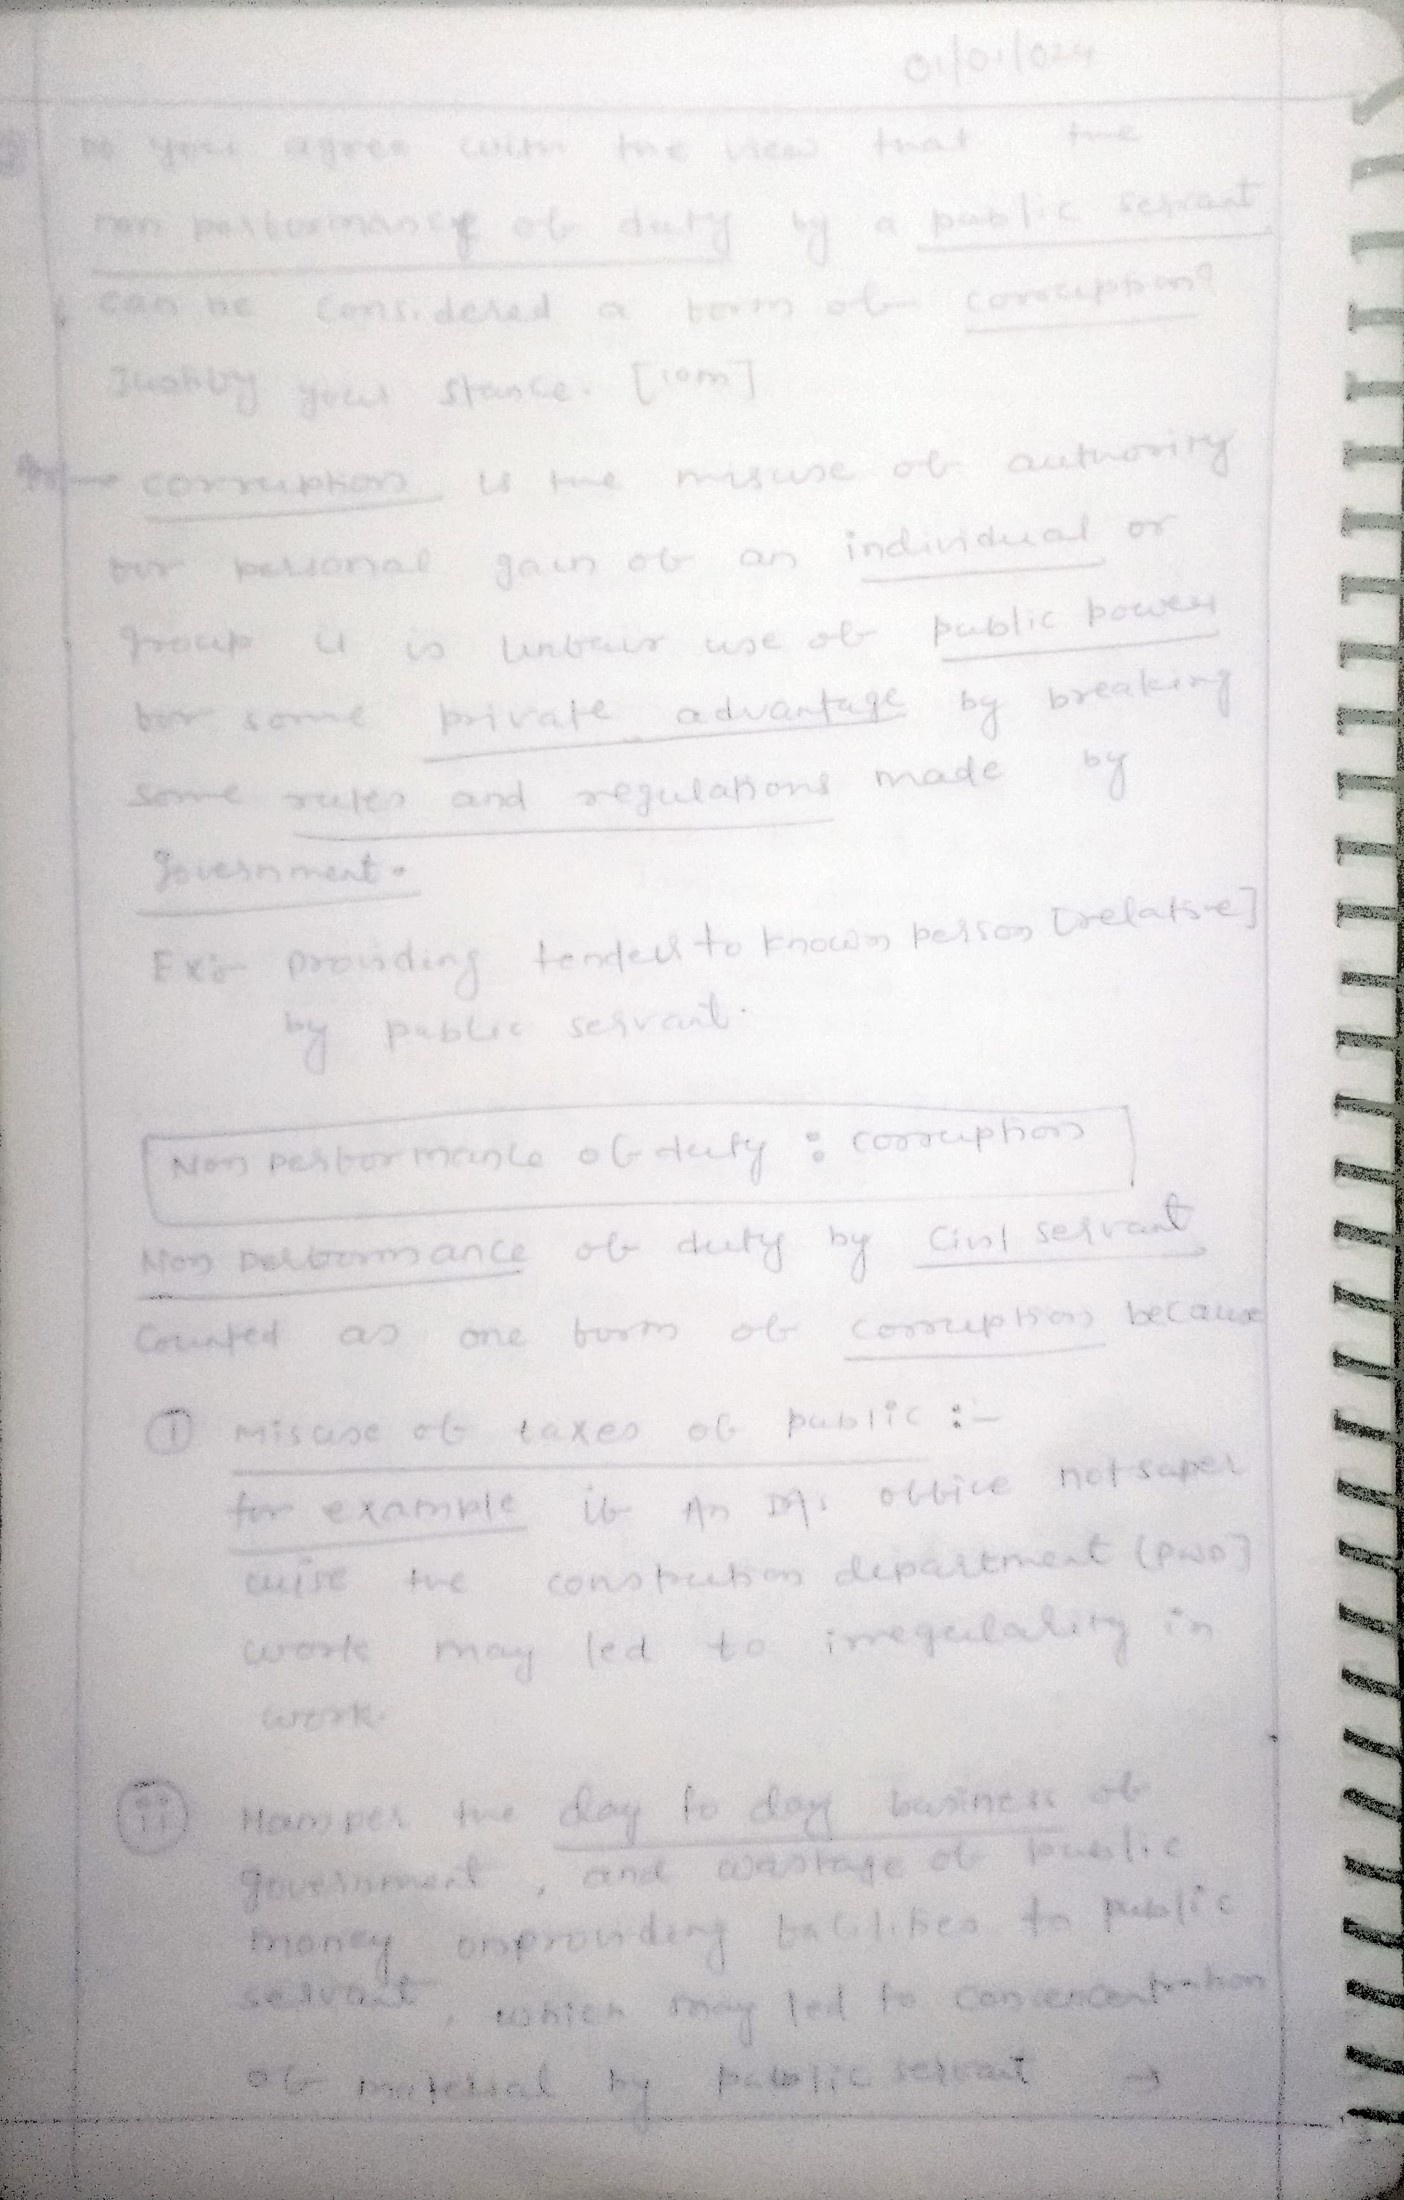 01/01/024
Do you agree with the view that the
non performance of duty by a public servant
can be considered a form of corruption?
Justify your stance. [10m]
corruption is the misuse of authority
for personal gain of an individual or
group it is unfair use of public power
for some private advantage by breaking
some rules and regulations made by
government.
Ex:- providing tender to known person [relative]
by public servant.
Non performance of duty : corruption
Non performance of duty by civil servant
counted as one form of corruption because
① misuse of taxes of public :-
for example if An office not super
wise the department (PWD]
work may led to irregularity in
work.
ii Hamper the day to day business of
government, and wastage of public
money onproviding facilities to public
servant, which may led to
of material by public servant →